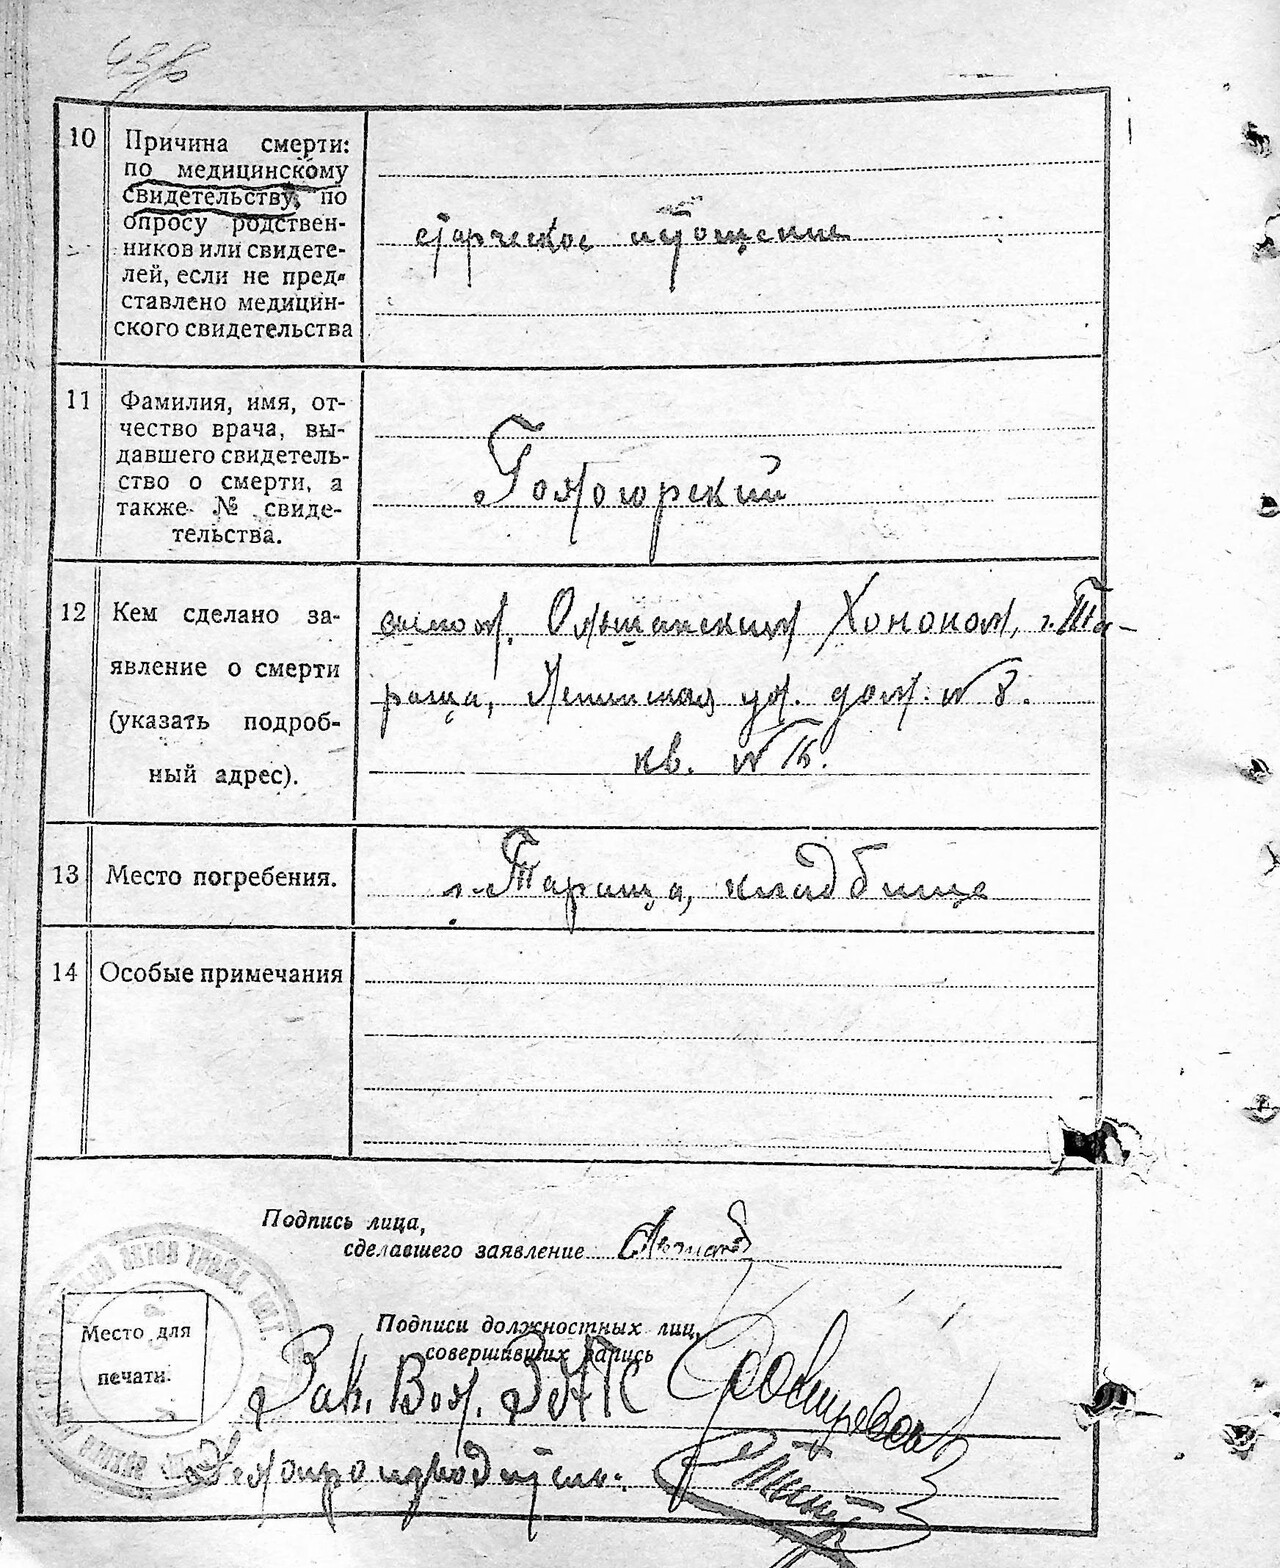 10
Причина смерти:
по медицинскому
свидетельству, по
опросу родствен-
ников или свидете-
лей, если не пред-
ставлено медицин-
ского свидетельства
старческое истощение
11
Фамилия, имя, от-
чество врача, вы-
давшего свидетель-
ство о смерти, а
также № свиде-
тельства.
12
Кем сделано за-
явление о смерти
(указать подроб-
ный адрес).
Ольшанским Хононом, г. Та-
раща, Ленинская ул. дом. №8.
кв. №
13
Место погребения.
г. Тараща, кладбище
14
Особые примечания
Подпись лица,
сделавшего заявление
Подписи должностных лиц,
совершивших запись
Место для
печати.
Зав. ЗАГС
Делопроизводитель: